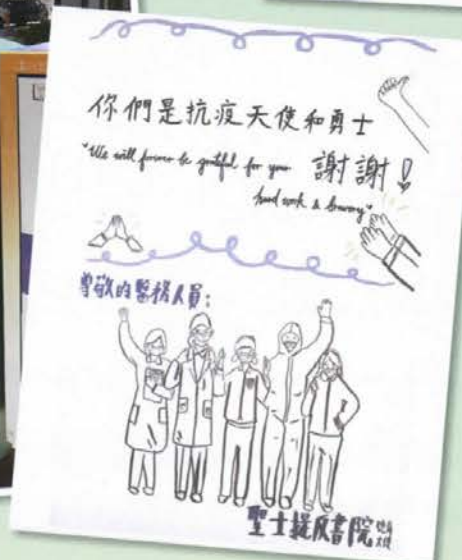 你們是抗疫天使和勇士
"We will forever be grateful for your 謝謝!
hard work & bravery"
尊敬的醫務人員:
聖士提反書院